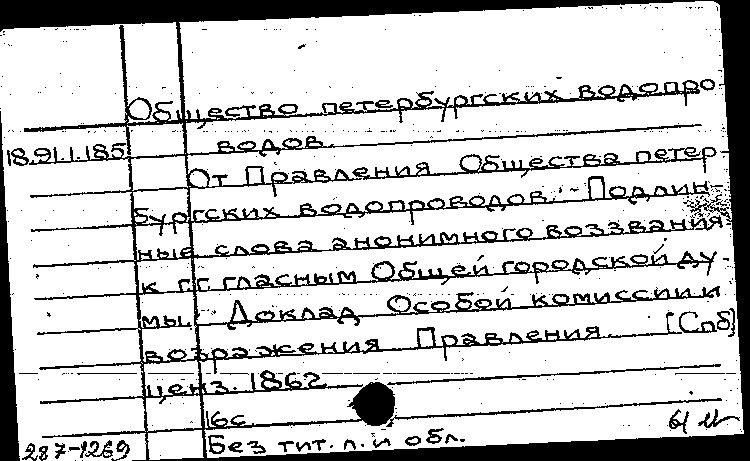 Общество петербургских водопро
18.91.1.185
водов.
От Правления Общества петер-
бургских водопроводов. - Подлин-
ные слова анонимного воззвания
к г.г. гласным Общей городской ду-
мы. Доклад Особой комиссии и
возражения Правления. [Спб]
ценз. 1862
16с.
Без тит. л. и обл.
287-1269